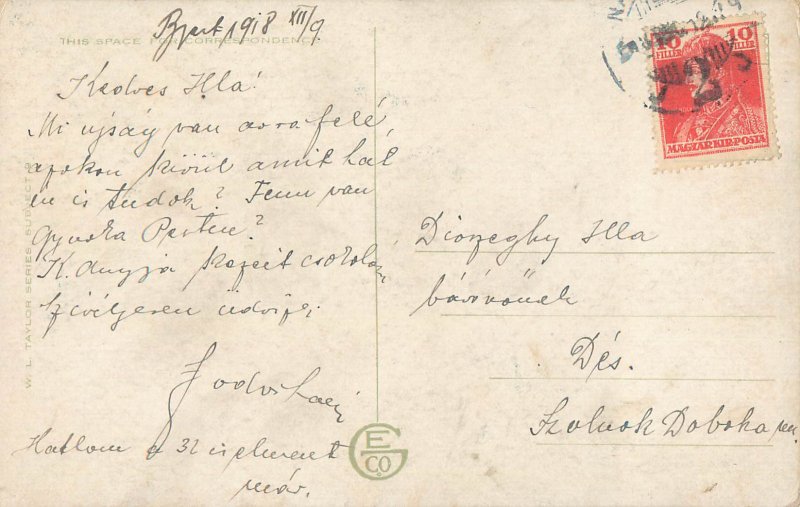 Bpest 1918 XII/9
THIS SPACE FOR CORRESPONDENCE
Kedves Illa!
Mi ujság van arra felé,
azokon kivül amit hál
én is tudok? Fenn van
Gyuszka Pesten?
K. anyja kezeit csókolom
szivélyesen üdvözli
Hallom a 32 is elment
már.
W. L. TAYLOR SERIES SUBJECT 9
E G CO
10 10
FILLÉR FILLÉR
MAGYAR KIR. POSTA
Diószeghy Illa
bárónőnek
Dés.
Szolnok Doboka m.